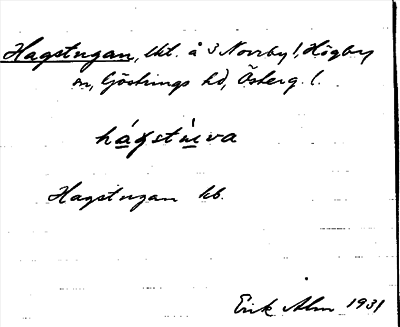 Hagstugan, lht. å 3 Norrby, Högby
sn, Göstrings hd, Österg. l.
hágstu̇va
Hagstugan kb.
Erik Alm 1931